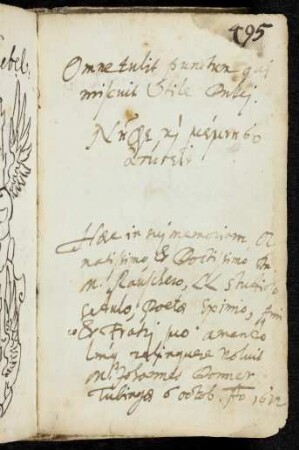 495
Omne tulit punctum qui
miscuit Utile Dulci.
Νῆφε κỳ μέμνησο
Haec in sui memoriam Or
natissimo, & Doctissimo Dn
M. Rauschero, LL. Studioso
Poetae Eximio, Ami
co & Fratri suo amando
relinquere voluit
M. Johannes Donner
Tubingae 6 octob. Ao 1622